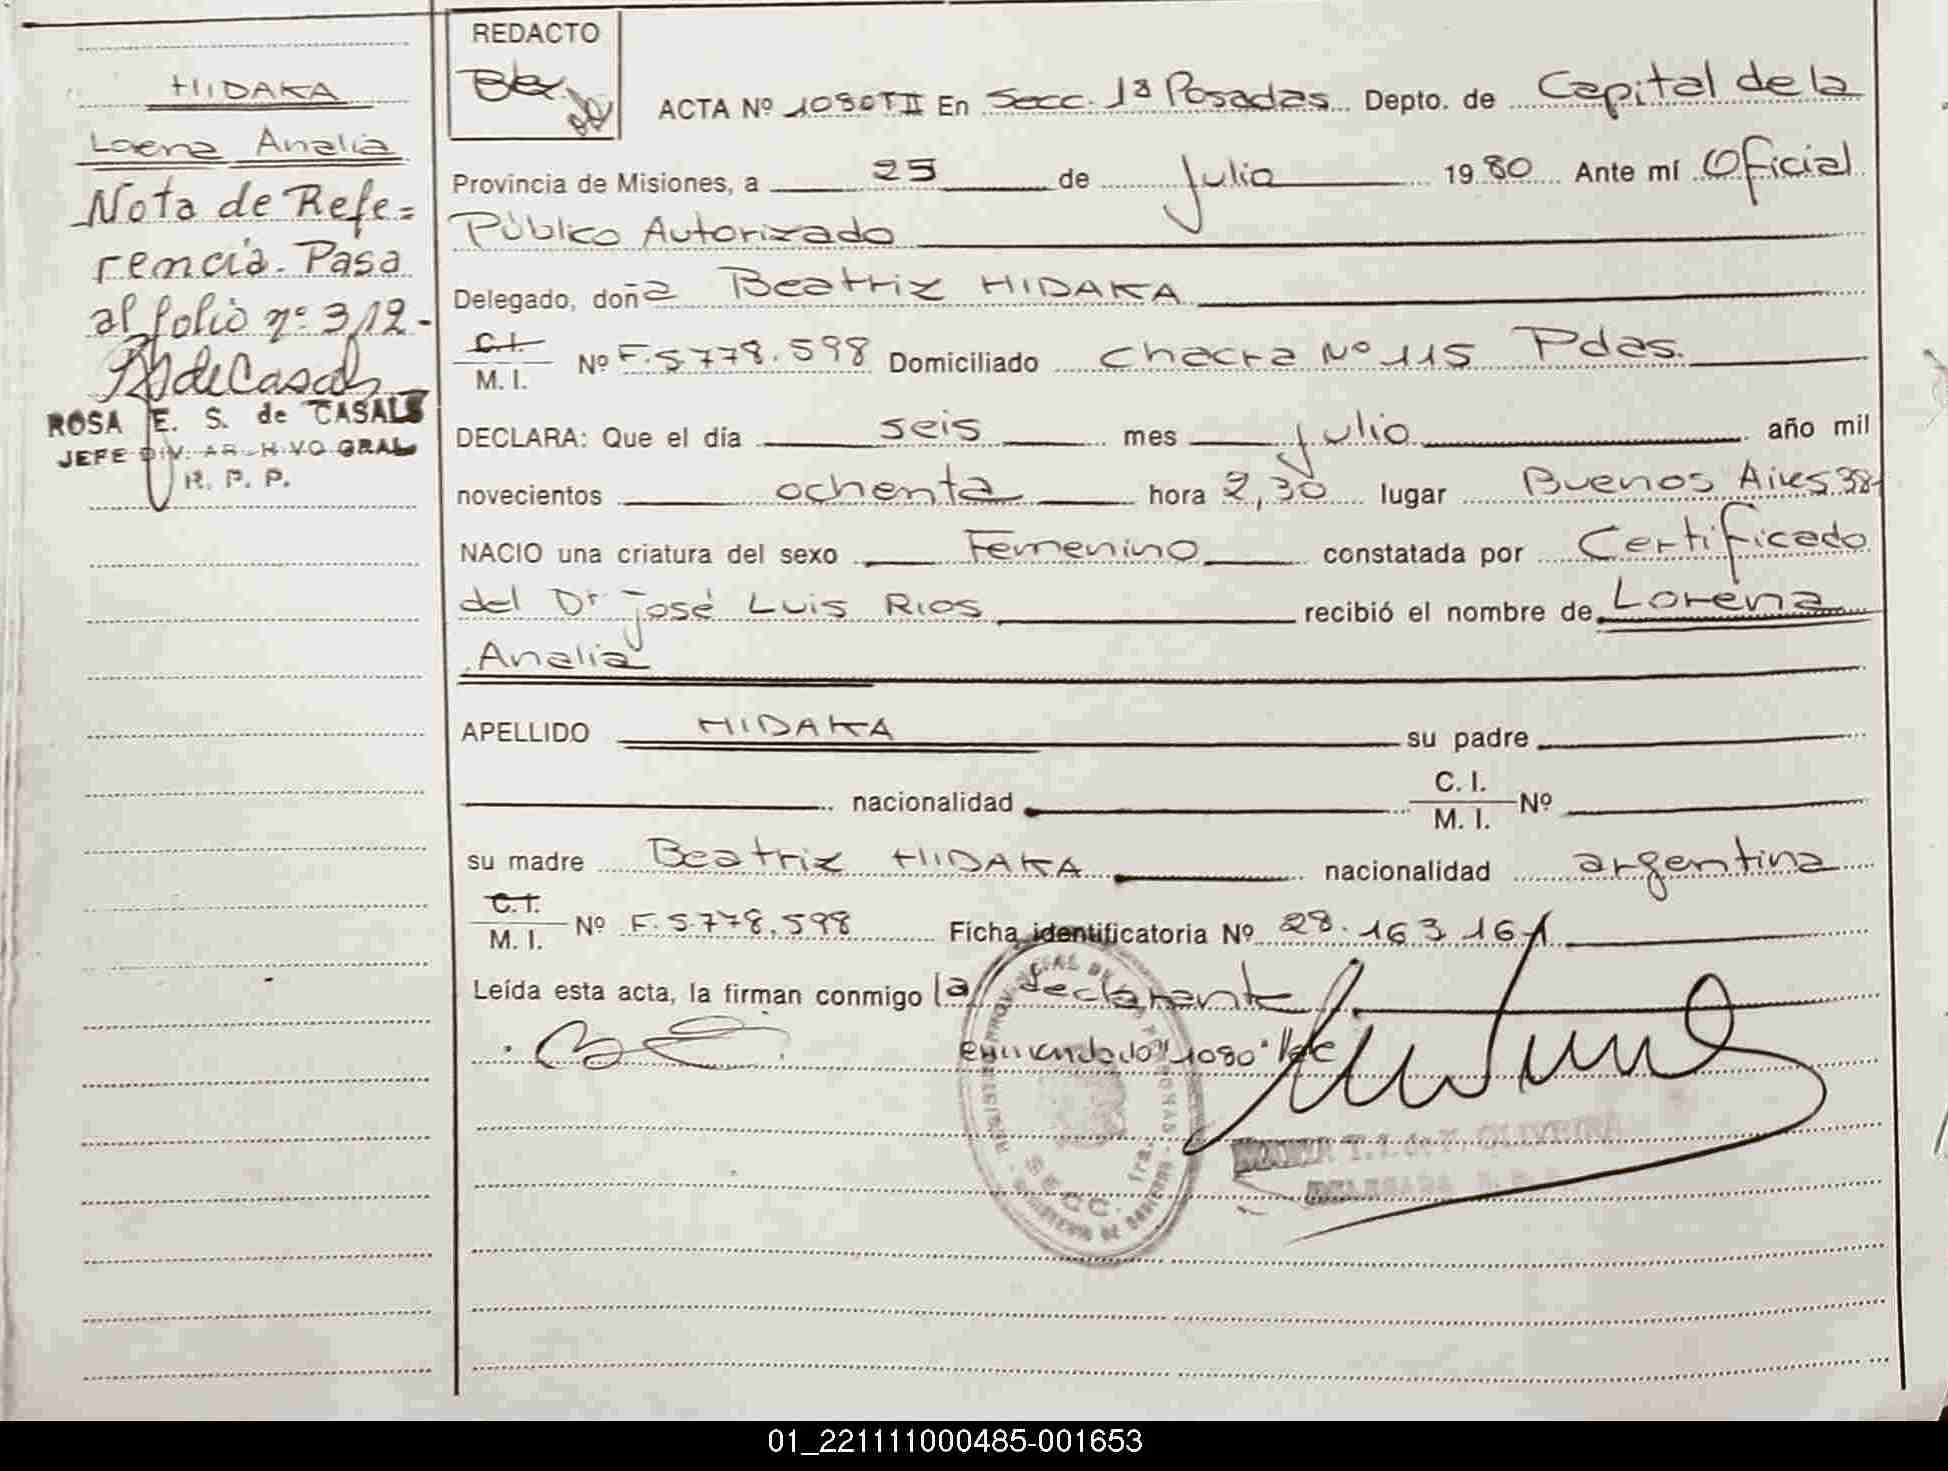 HIDAKA
Lorena Analia
Nota de Refe=
rencia. Pasa
al folio nº 312-
RSdeCasals
ROSA E. S. de CASALS
JEFE DIV. ARCHIVO GRAL
R. P. P.
REDACTO
ACTA Nº 1080 T II En Secc. 1ª Posadas Depto. de Capital de la
Provincia de Misiones, a 25 de Julio 1980 Ante mí Oficial
Público Autorizado
Delegado, doña Beatriz HIDAKA
C.I.
M. I. Nº F.5.778.598 Domiciliado Chacra Nº 115 Pdas.
DECLARA: Que el día seis mes julio año mil
novecientos ochenta hora 2,30 lugar Buenos Aires 38-
NACIO una criatura del sexo Femenino constatada por Certificado
del Dr José Luis Rios recibió el nombre de Lorena
Analia
APELLIDO HIDAKA su padre
nacionalidad C. I.
M. I. Nº
su madre Beatriz HIDAKA nacionalidad argentina
C.I.
M. I. Nº F.5.778.598 Ficha identificatoria Nº 28.163.161
Leída esta acta, la firman conmigo la declarante
enmendado "1080" Vale
SECC. 1ra.
DELEGADA
01_221111000485-001653